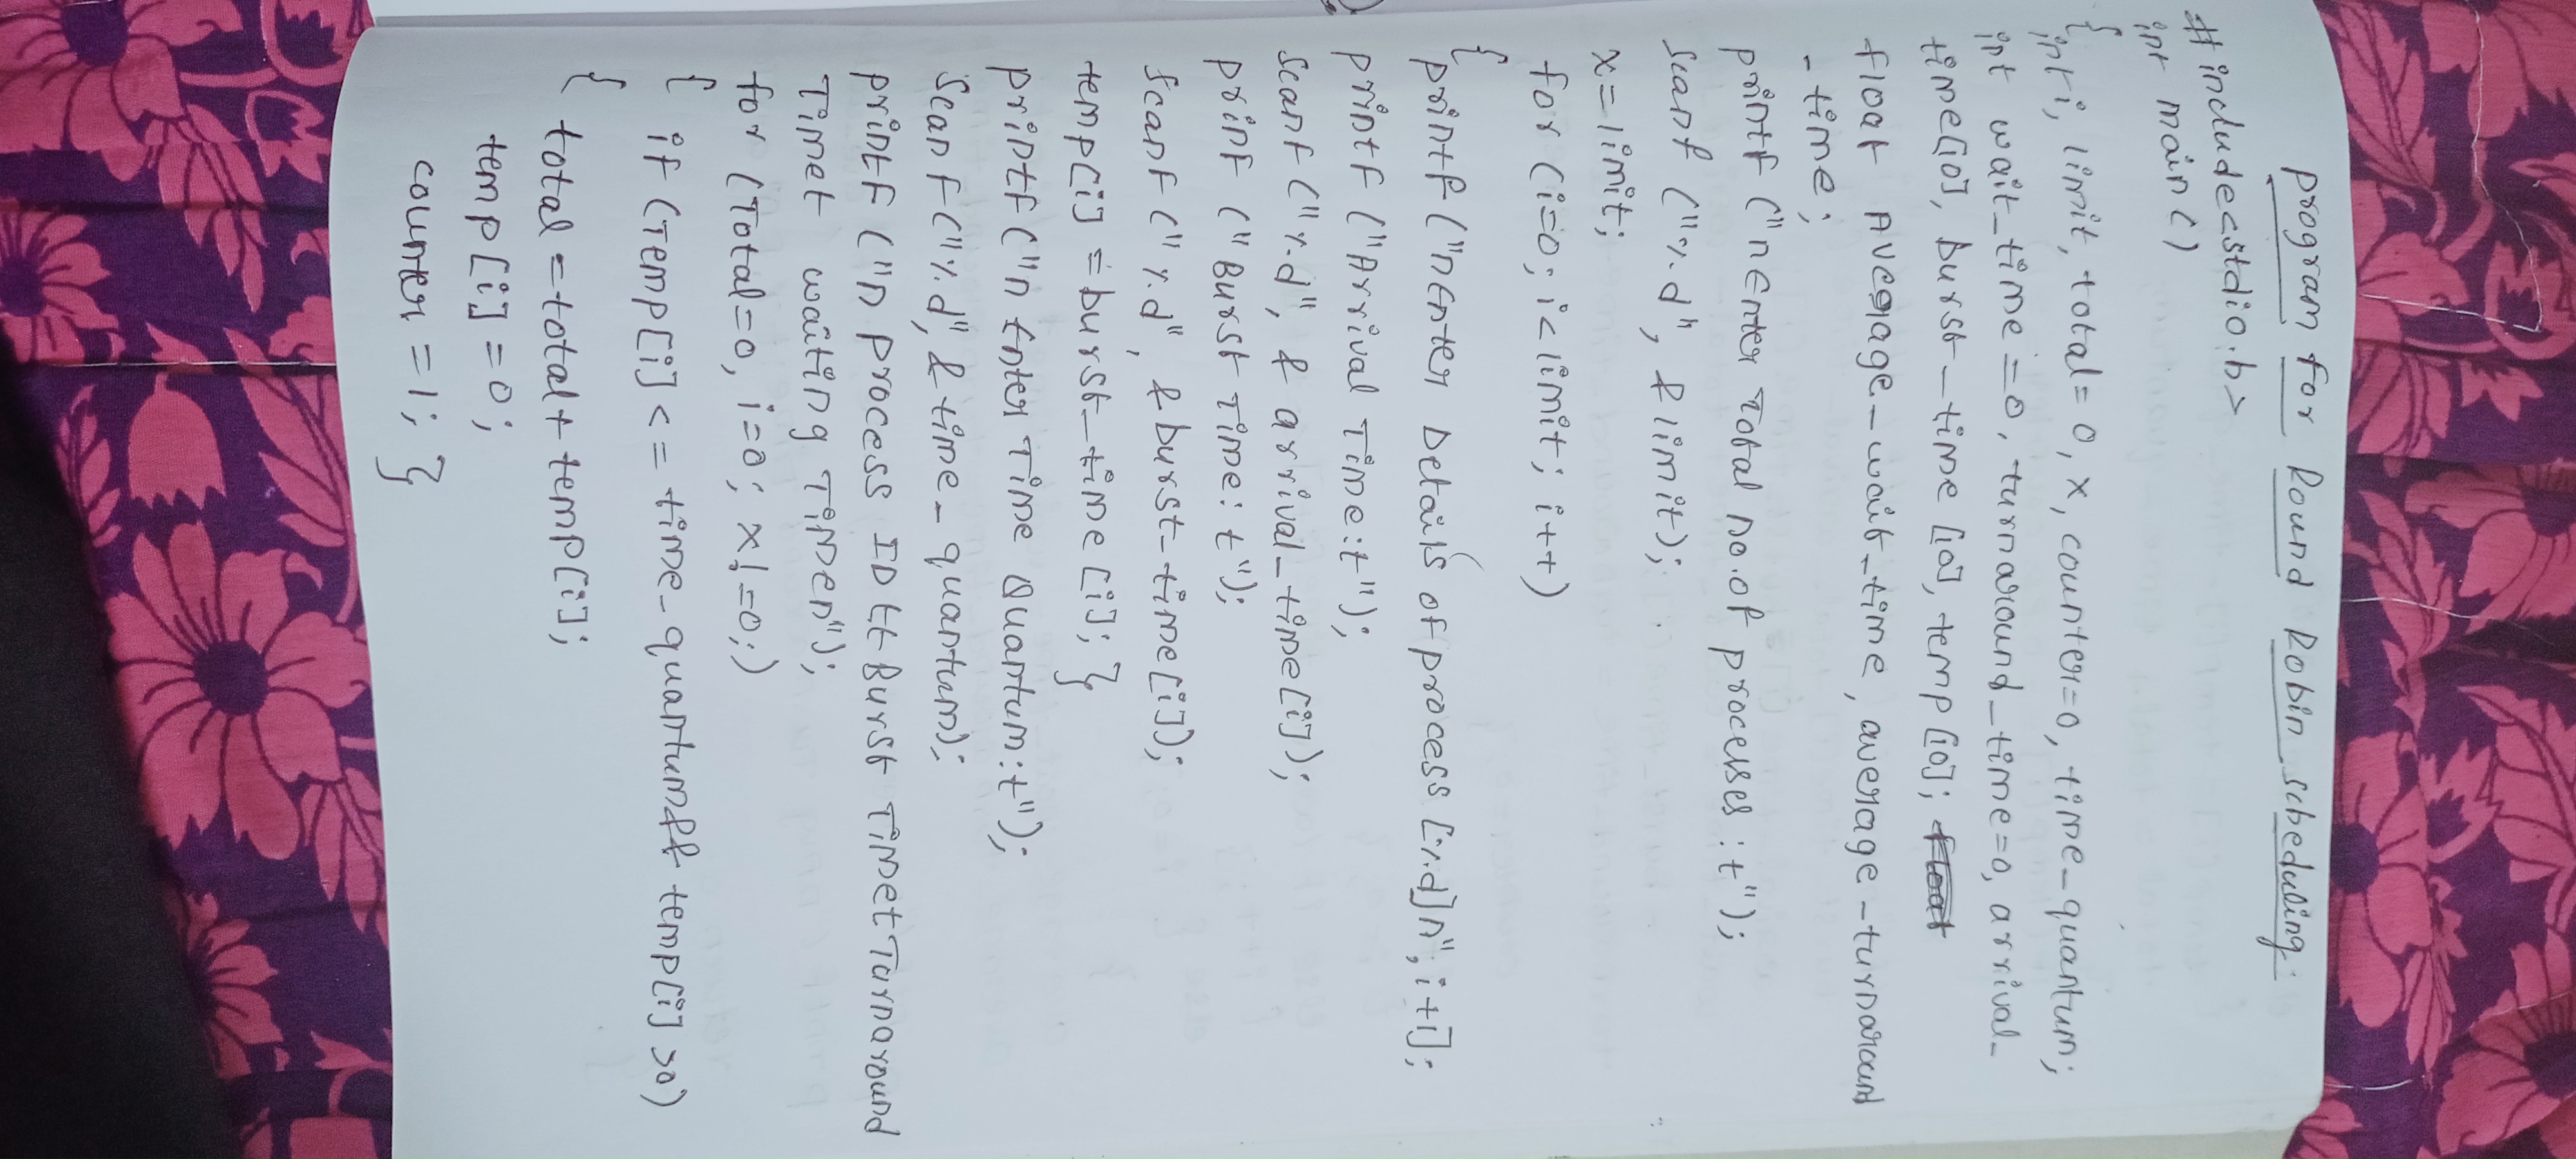 program for Round Robin scheduling:
#include<stdio.h>
int main()
{
int i, limit, total=0, x, counter=0, time_quantum;
int wait_time=0, turnaround_time=0, arrival_
time[10], burst_time[10], temp[10];
float average_wait_time, average_turnaround
_time;
printf("n Enter Total no.of processes:t");
scanf("%d", &limit);
x=limit;
for(i=0; i<limit; i++)
{
printf("nEnter Details of process[%d]n", i+1];
printf("Arrival Time:t");
scanf("%d", & arrival_time[i]);
prinf("Burst Time:t");
scanf("%d", &burst_time[i]);
temp[i]=burst_time[i]; }
printf("n Enter Time Quantum:t");
scanf("%d", &time_quantum);
printf("n process IDtt Burst TimetTurnaround
Timet waiting Timen");
for(Total=0, i=0; x!=0;)
{ if(Temp[i]<=time_quantum&& temp[i]>0)
{ total=total+temp[i];
temp[i]=0;
counter=1; }